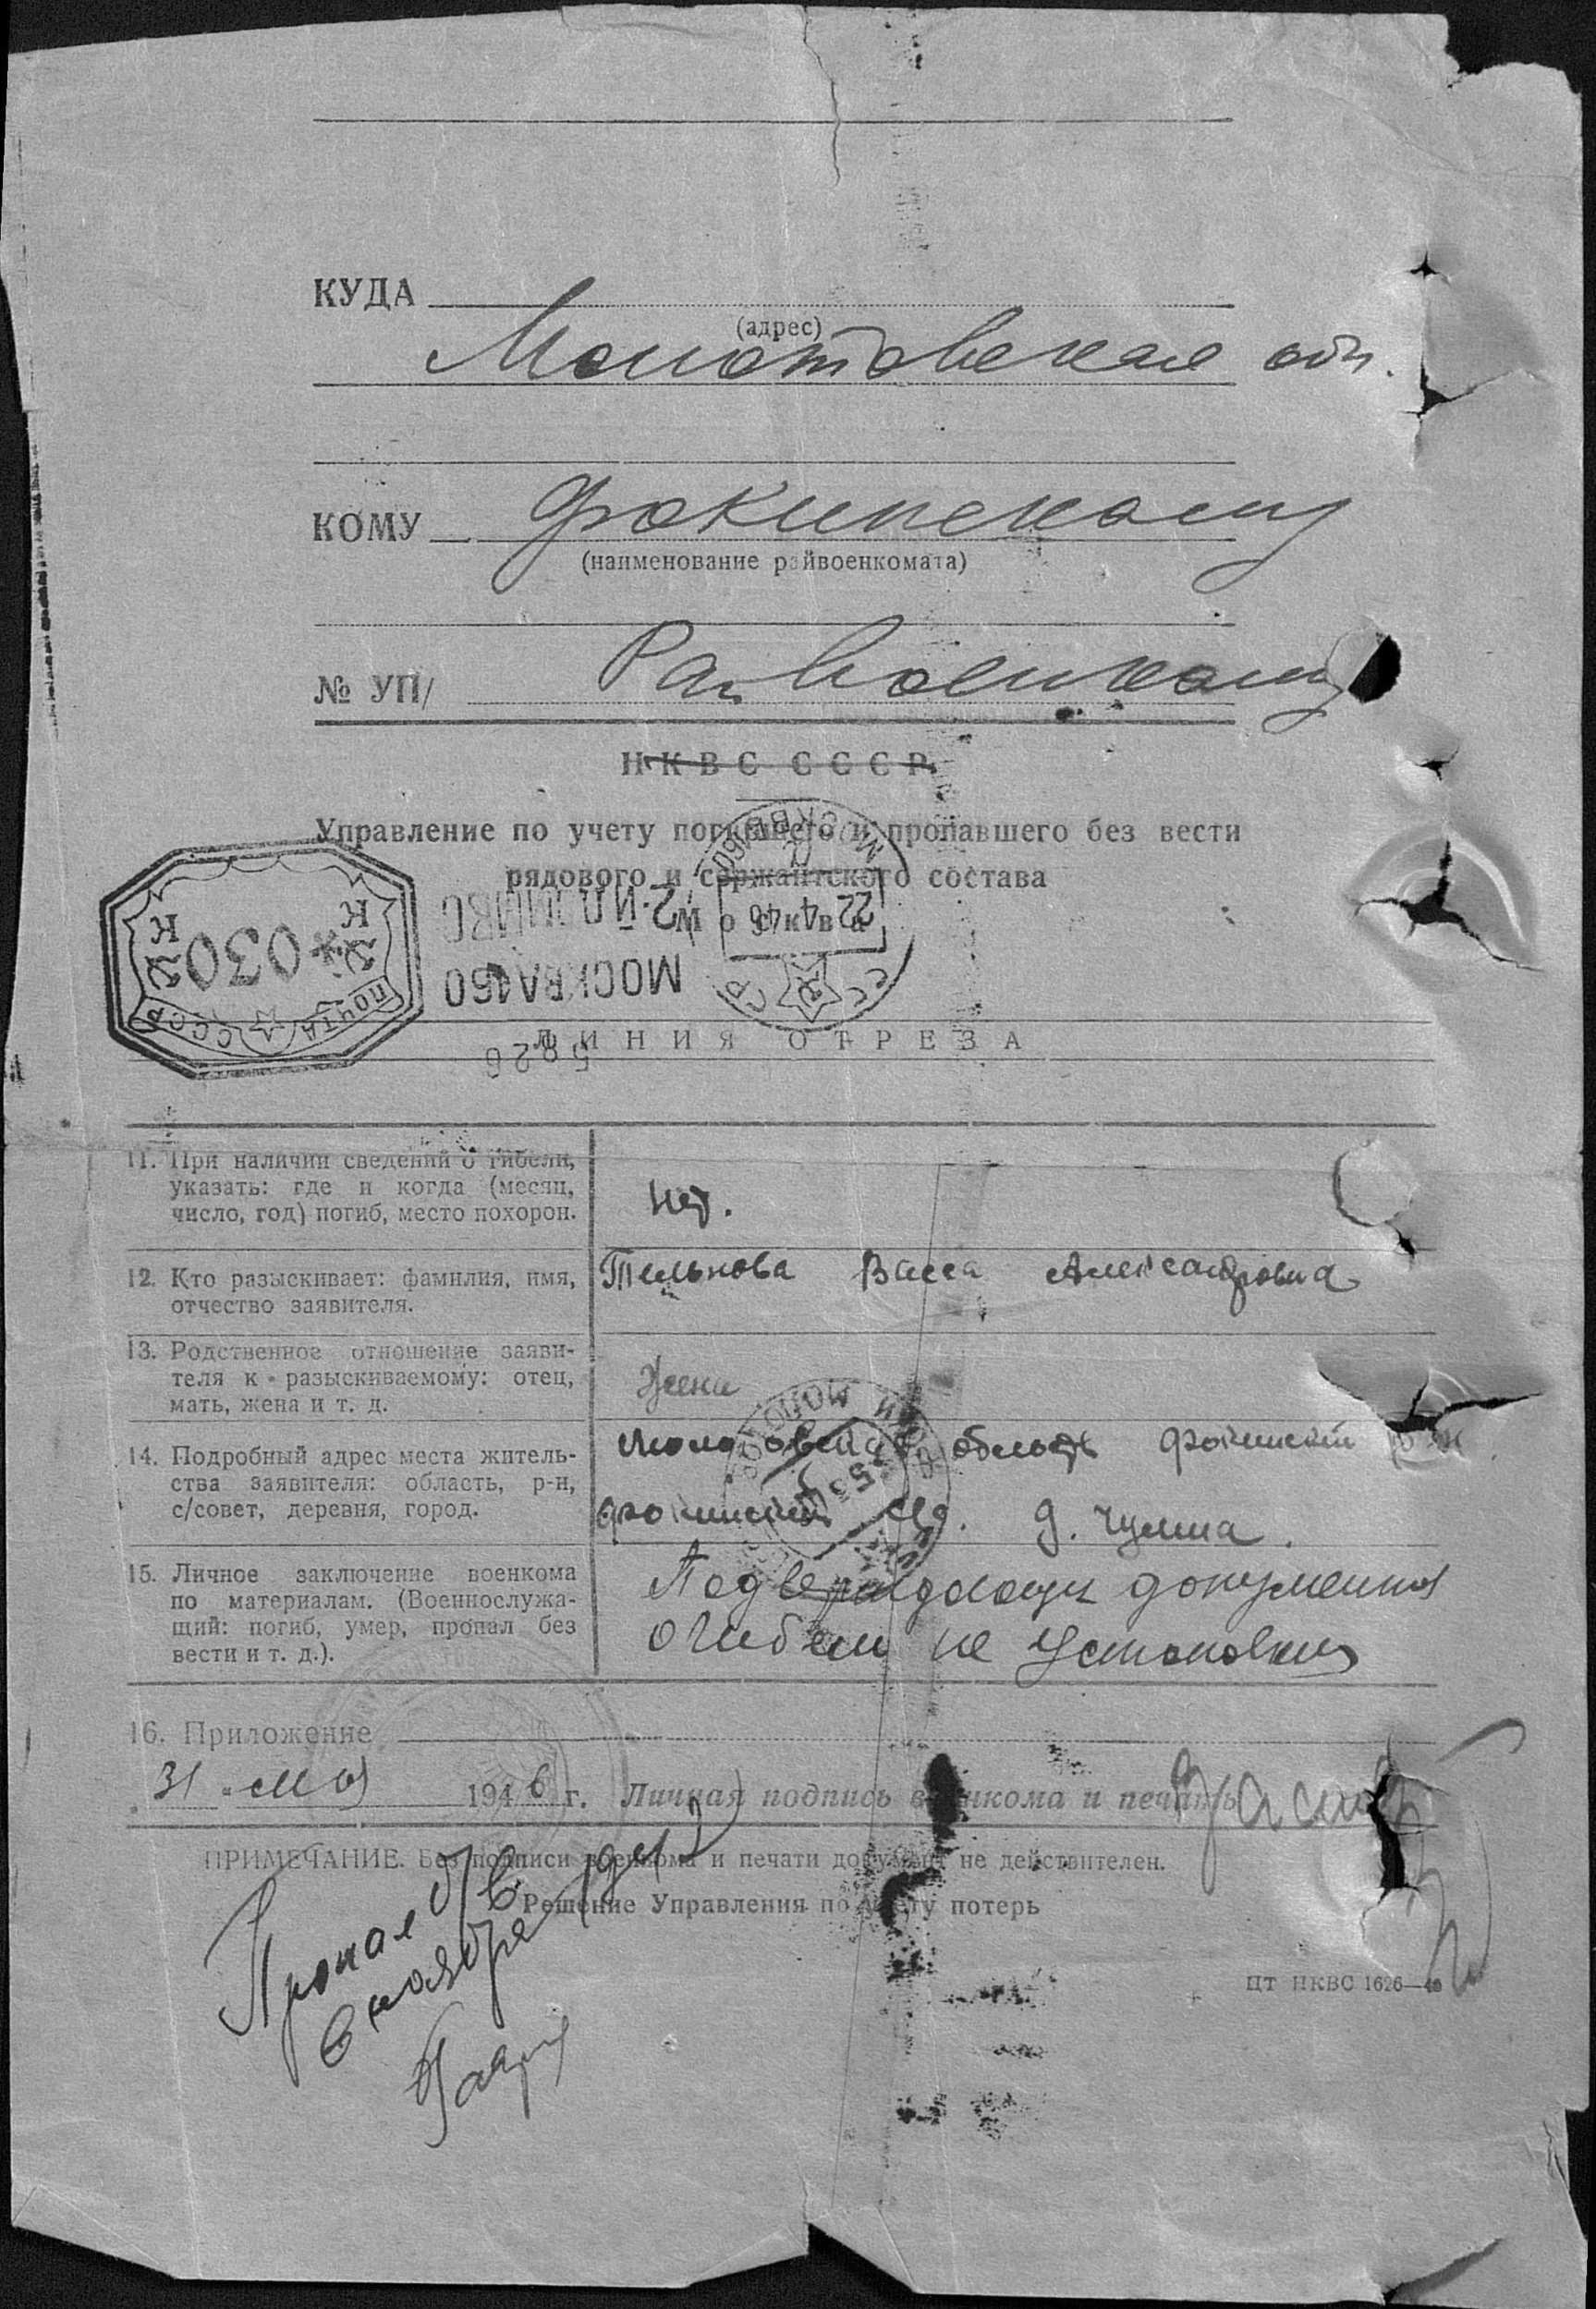 КУДА
(адрес)
Молотовская обл.
КОМУ Фокинскому
(наименование райвоенкомата)
№ УП/ Райвоенкому
НКВС СССР
Управление по учету погибшего и пропавшего без вести
рядового и сержантского состава
МОСКВА 160
22 4 46
МОСКВА
030
К К
ПОЧТА СССР
5826
ЛИНИЯ ОТРЕЗА
11. При наличии сведений о гибели,
указать: где и когда (месяц,
число, год) погиб, место похорон.
Нет.
12. Кто разыскивает: фамилия, имя,
отчество заявителя.
Тельнова Васса Александровна
13. Родственное отношение заяви-
теля к разыскиваемому: отец,
мать, жена и т. д.
Жена
14. Подробный адрес места житель-
ства заявителя: область, р-н,
с/совет, деревня, город.
Молотовская область Фокинский р-н
Фокинский с/с. д. Чумна.
15. Личное заключение военкома
по материалам. (Военнослужа-
щий: погиб, умер, пропал без
вести и т. д.).
Подтверждающих документов
о гибели не установлено
16. Приложение
31 мая 1946 г. Личная подпись военкома и печать
ПРИМЕЧАНИЕ. Без подписи военкома и печати документ не действителен.
Решение Управления по учету потерь
Пропал б/в
в ноябре
ЦТ НКВС 1626—